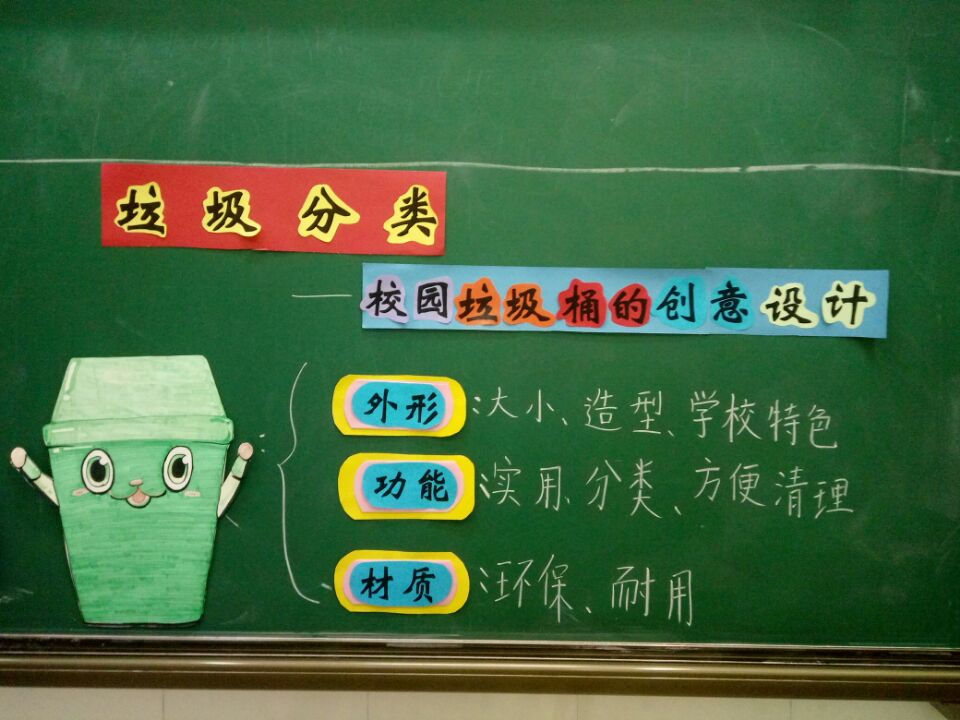 垃圾分类
—校园垃圾桶的创意设计
外形:大小、造型、学校特色
功能:实用、分类、方便清理
材质:环保、耐用